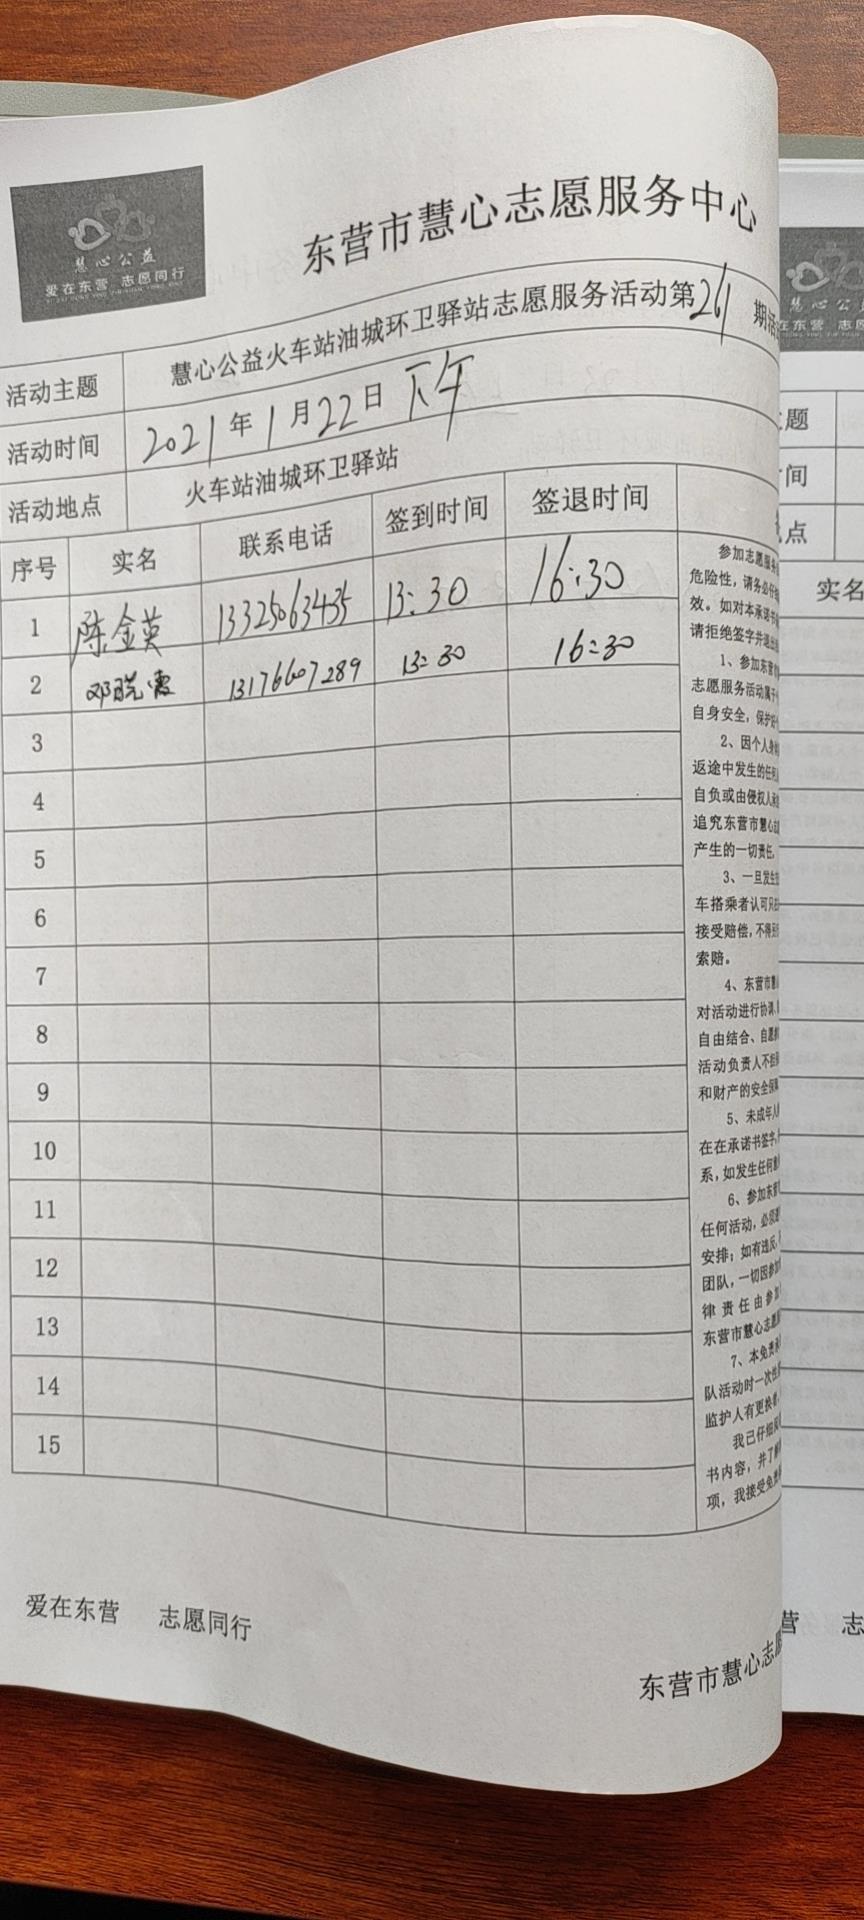 慧心公益
爱在东营 志愿同行
东营市慧心志愿服务中心
活动主题 慧心公益火车站油城环卫驿站志愿服务活动第261期活
活动时间 2021年1月22日 下午
活动地点 火车站油城环卫驿站
序号 实名 联系电话 签到时间 签退时间
1 陈金英 13325063435 13:30 16:30
2 邓晓霞 13176607289 13:30 16:30
3
4
5
6
7
8
9
10
11
12
13
14
15
参加志愿服务
危险性，请务必仔
效。如对本承诺书
请拒绝签字并退出
1、参加东营
志愿服务活动属于
自身安全，保护好
2、因个人身
返途中发生的任何
自负或由侵权人承
追究东营市慧心志
产生的一切责任。
3、一旦发生
车搭乘者认可只在
接受赔偿，不得
索赔。
4、东营市慧
对活动进行协调、
自由结合、自愿
活动负责人不担
和财产的安全保
5、未成年人
在在承诺书签字，
系，如发生任何意
6、参加东营
任何活动，必须
安排；如有违反，
团队，一切因参加
律责任由参加
东营市慧心志愿
7、本免责承
队活动时一次性
监护人有更换者，
我已仔细阅
书内容，并了解
项，我接受免责
爱在东营 志愿同行
东营市慧心志愿
慧心公益
在东营 志愿
主题
时间
点
实名
营 志